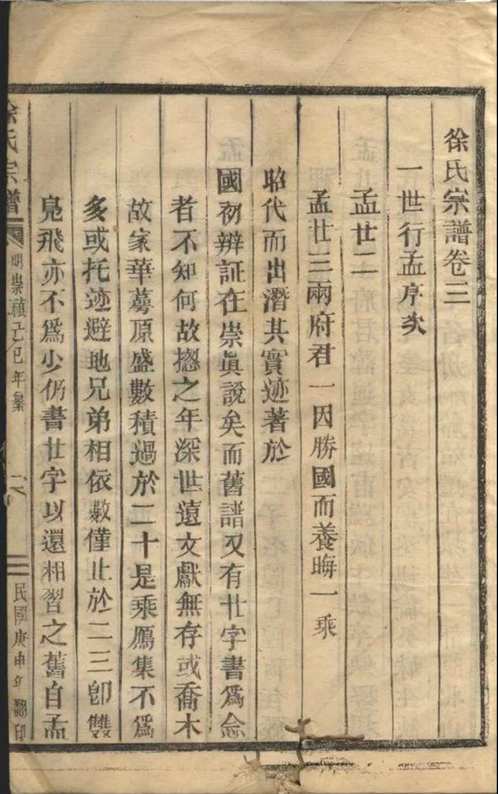 徐氏宗譜卷三
一世行孟序次
孟廿二
孟廿三兩府君一因勝國而養晦一乘
昭代而出潛其實迹著於
國初辨証在崇眞說矣而舊譜又有廿字書爲念
者不知何故揔之年深世遠文獻無存或喬木
故家華蕚原盛數積過於二十是乘鴈集不爲
多或托迹避地兄弟相依數僅止於二三卽雙
鳬飛亦不爲少仍書廿字以還相習之舊自孟
徐氏宗譜 明崇禎己巳年纂 民國庚申年翻印